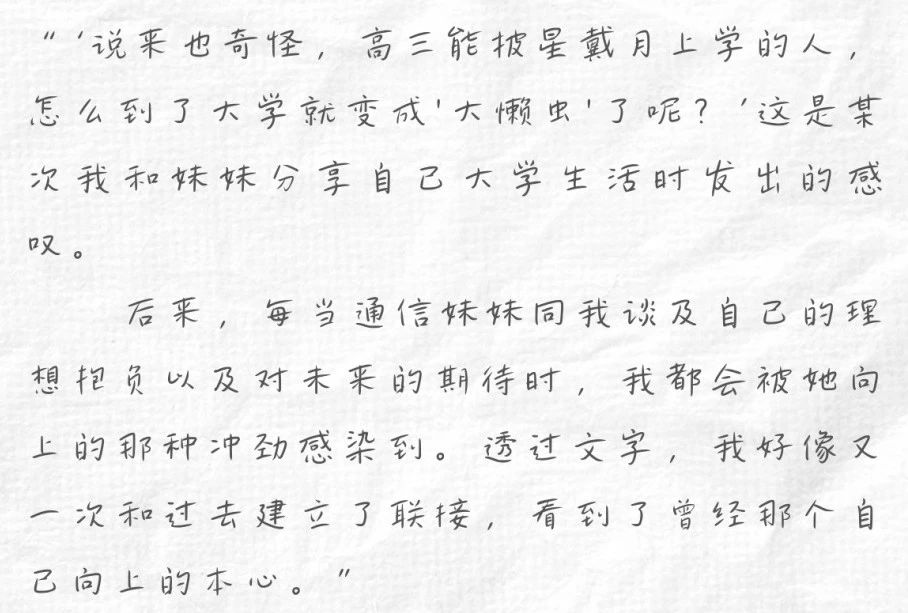 “‘说来也奇怪，高三能披星戴月上学的人，
怎么到了大学就变成'大懒虫'了呢？’这是某
次我和妹妹分享自己大学生活时发出的感
叹。
后来，每当通信妹妹同我谈及自己的理
想抱负以及对未来的期待时，我都会被她向
上的那种冲劲感染到。透过文字，我好像又
一次和过去建立了联接，看到了曾经那个自
己向上的本心。”